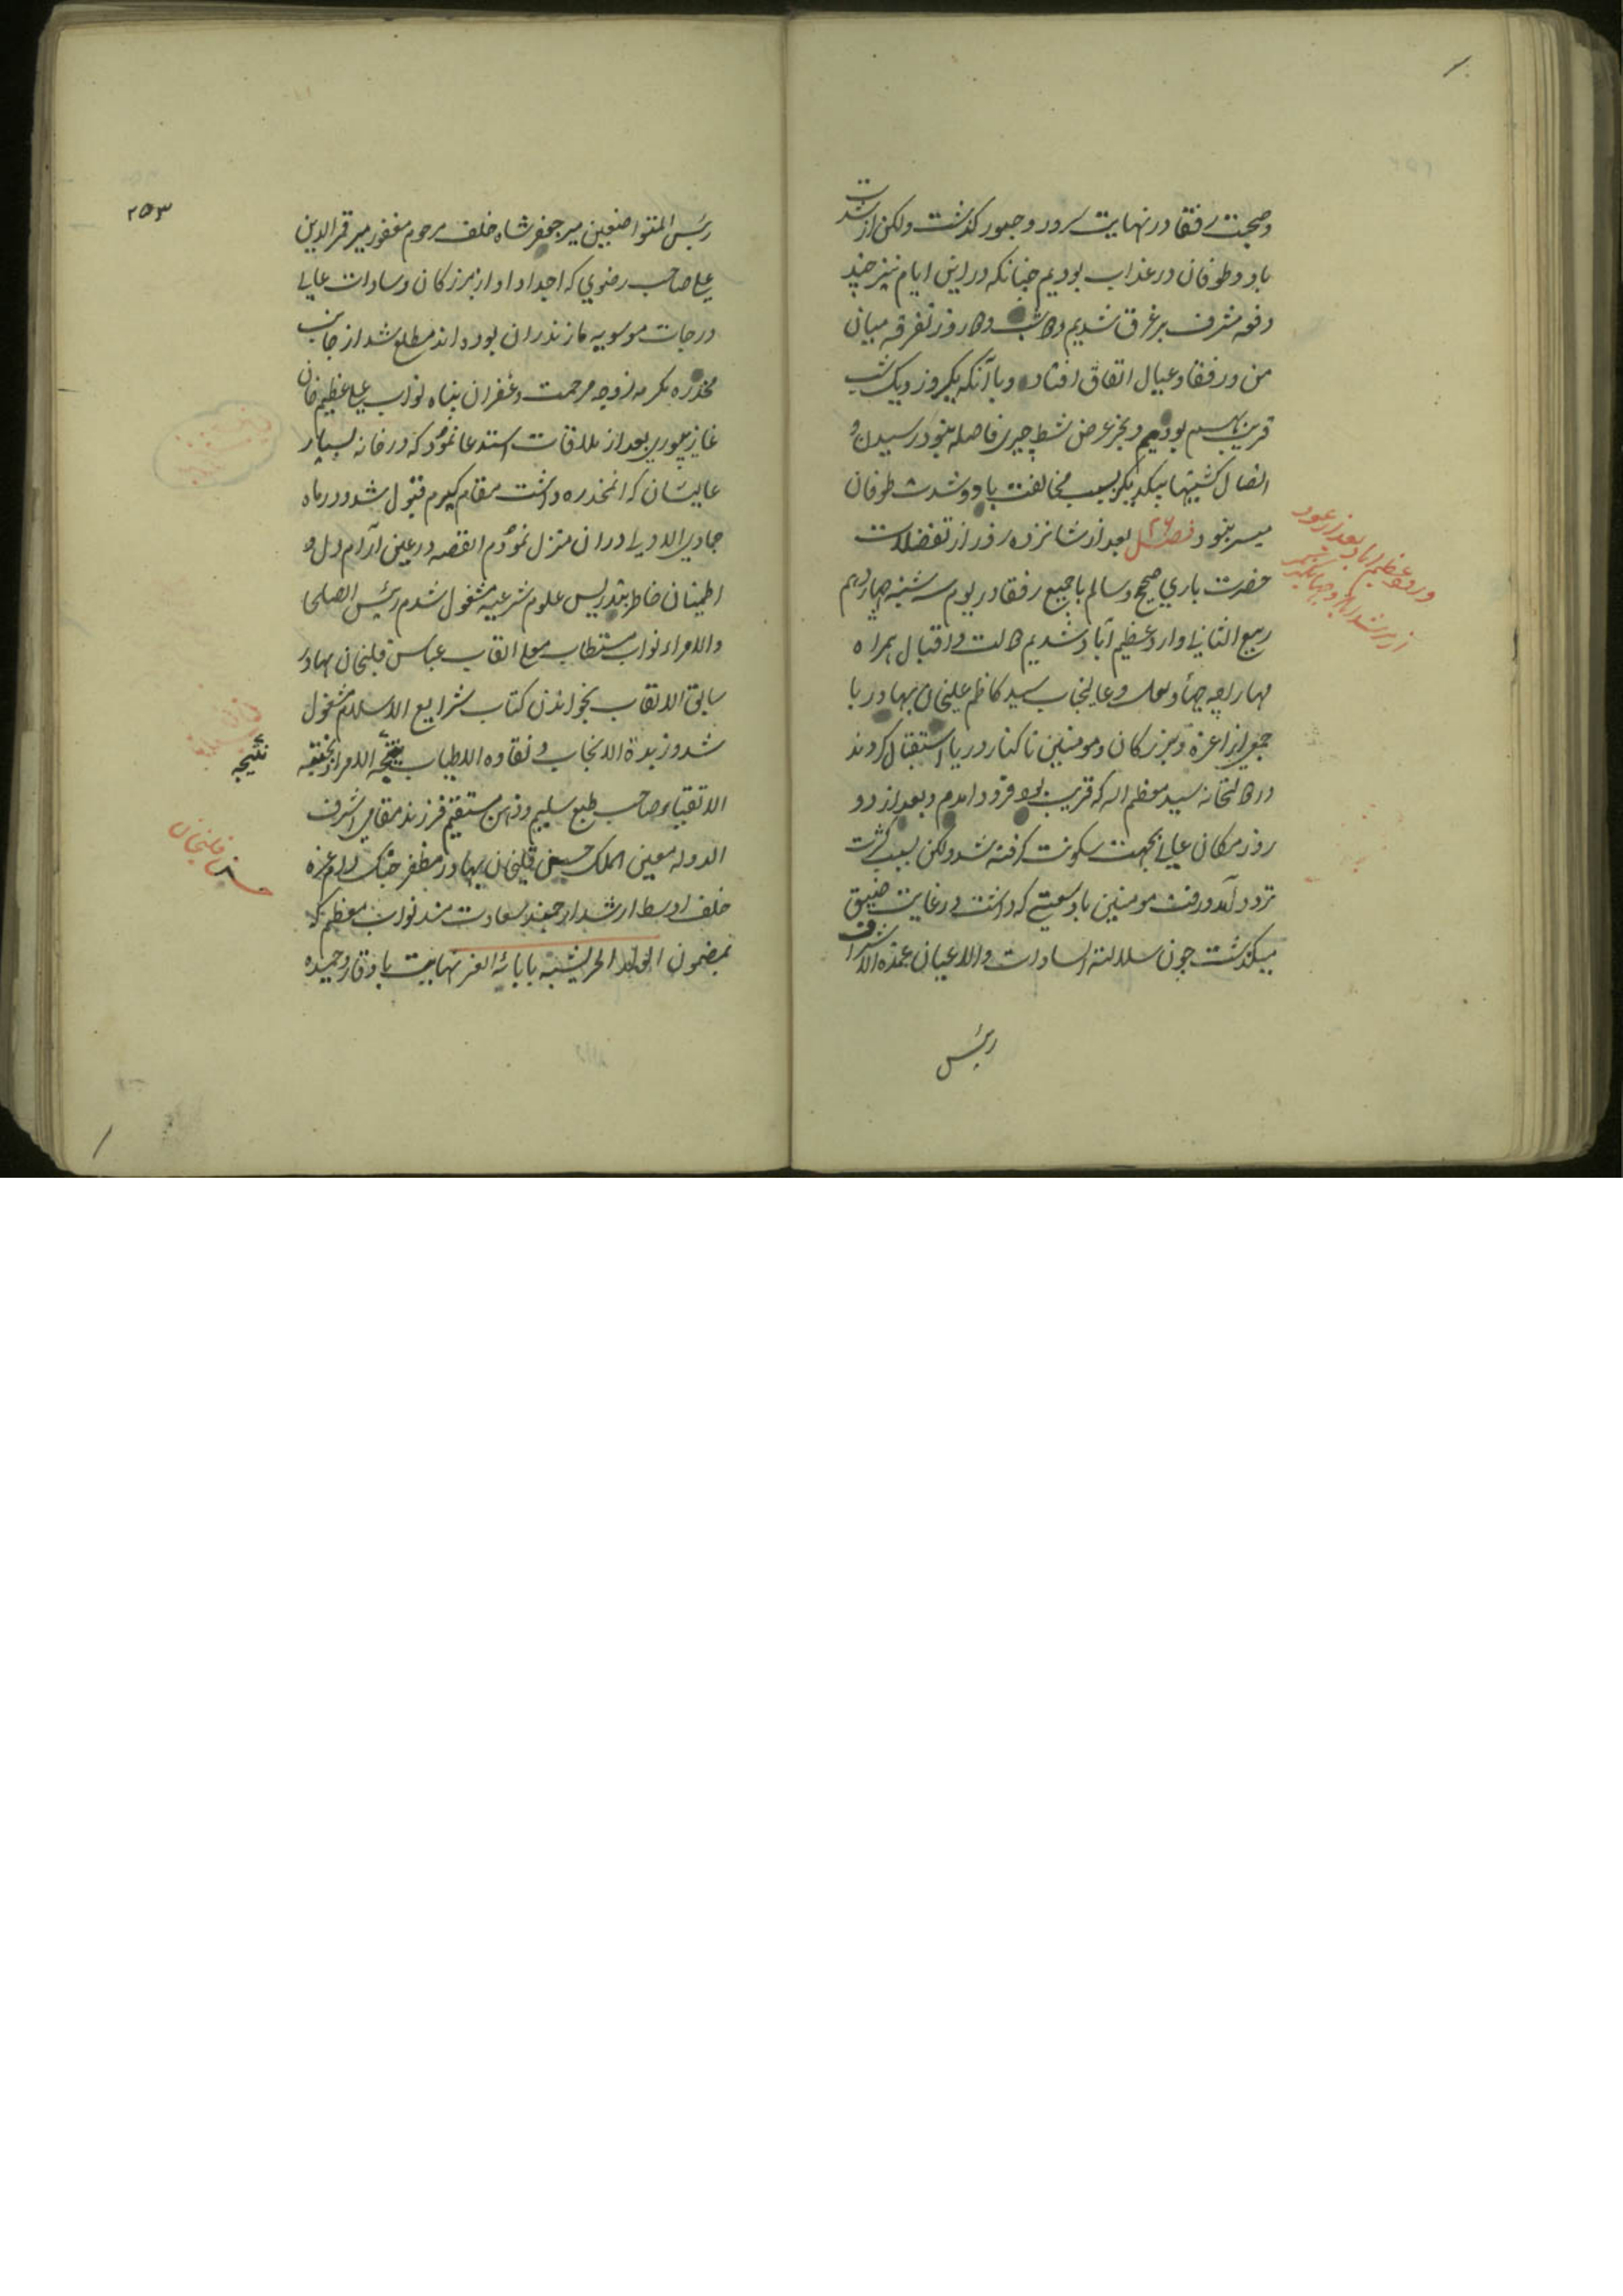 وصحبت رفقا در نهایت سرور و حبور گذشت ولکن از شدت
باد و طوفان در عذاب بودیم چنانکه در این ایام نیز چند
دفعه مشرف بر غرق شدیم و شب و روز تفرقه میان
من و رفقا و عیال اتفاق افتاد و با آنکه یکروز و یک شب
قریب بهم بودیم و بجز عرض شط چیزی فاصله نبود رسیدن و
اتصال کشتیها بیکدیگر بسبب مخالفت باد و شدت طوفان
میسر نبود فصل بعد از شانزده روز از تفضلات
حضرت باری صحیح و سالم با جمیع رفقا در یوم سه شنبه چهاردهم
ربیع الثانی وارد عظیم آباد شدیم و اقبال همراه
مهاراجه و عالیجناب سید کاظم علیخان بهادر با
جمعی از اعزه و بزرگان و مومنین تا کنار دریا استقبال کردند
سید معظم الیه که قریب بود فرود آمدم و بعد از دو
روز مکان عالی بجهت سکونت گرفته شد ولکن بسبب کثرت
تردد و آمد و رفت مومنین با وسعتی که داشت در غایت ضیق
میگذشت چون سلالة السادات والاعیان عمدة الاشراف
رئیس
ورود عظیم اباد بعد از عود
از مرشداباد و جهانگیر نکر
۲۵۳
رئیس المتواضعین میر جعفر شاه خلف مرحوم مغفور میر قمر الدین
علی صاحب رضوی که اجداد او از بزرگان و سادات عالی
درجات موسویه مازندران بوده اند مطلع شد از جانب
مخدره مکرمه زوجه مرحمت و غفران پناه نواب علی عظیم خان
غازیپوری بعد از ملاقات استدعا نمود که در خانه بسیار
عالیشان که انمخدره داشت مقام گیرم قبول شد و در ماه
جمادی الاولی در ان منزل نمودم القصه در عین آرام دل و
اطمینان خاطر بتدریس علوم شرعیه مشغول شدم رئیس الصلحا
والامراء نواب مستطاب معلی القاب عباس قلیخان بهادر
سابق الالقاب بخواندن کتاب شرایع الاسلام مشغول
شد و زبدة الانجاب و نقاوه الاطیاب نتیجه الامراء نخبة
نتیجه
الاتقیاء صاحب طبع سلیم و ذهن مستقیم فرزند مقامی اشرف
الدوله معین الملک حسین قلیخان بهادر مظفر جنک دام عزه
حسین قلیخان
خلف اوسط ارشد ارجمند سعادت مند نواب معظم که
بمضمون الولد الحر یشبه بابائه الغر نهایت با وقار و حمیده